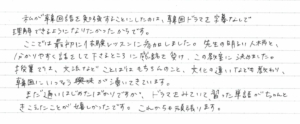 私が韓国語を勉強することにしたのは、韓国ドラマを字幕なしで
理解できるようになりたかったからです。
ここでは最初に体験レッスンに参加しました。先生の明るい人柄と、
わかりやすく話をして下さるところに魅力を感じ、この教室に決めました。
授業では、文法などことばはもちろんのこと、文化の違いなども教われ、
韓国にいっそう興味が湧いてきています。
まだ通いはじめたばかりですが、ドラマをみていて習った単語がちゃんと
ききとれたことが嬉しかったです。これからも頑張ります。